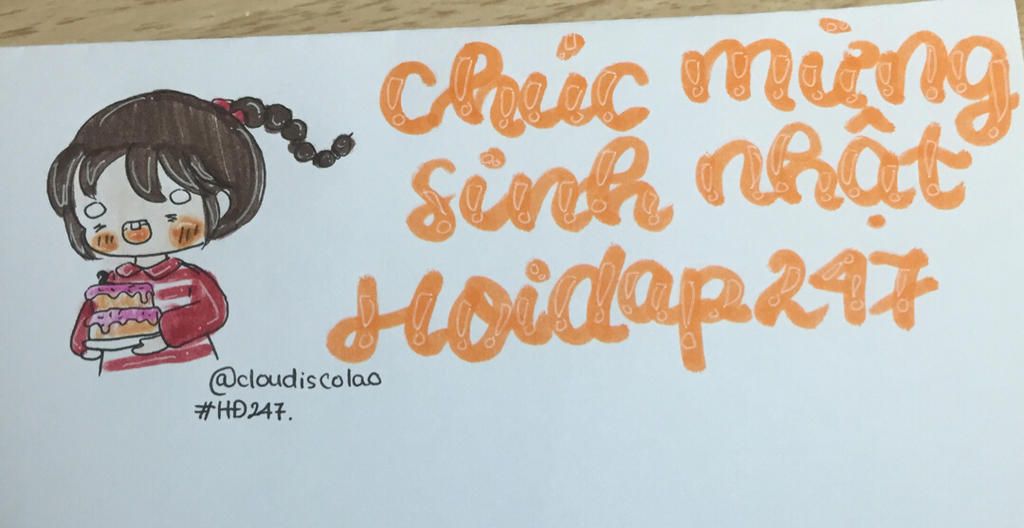 chúc mừng
sinh nhật
Hoidap247
@cloudiscolao
#HĐ247.